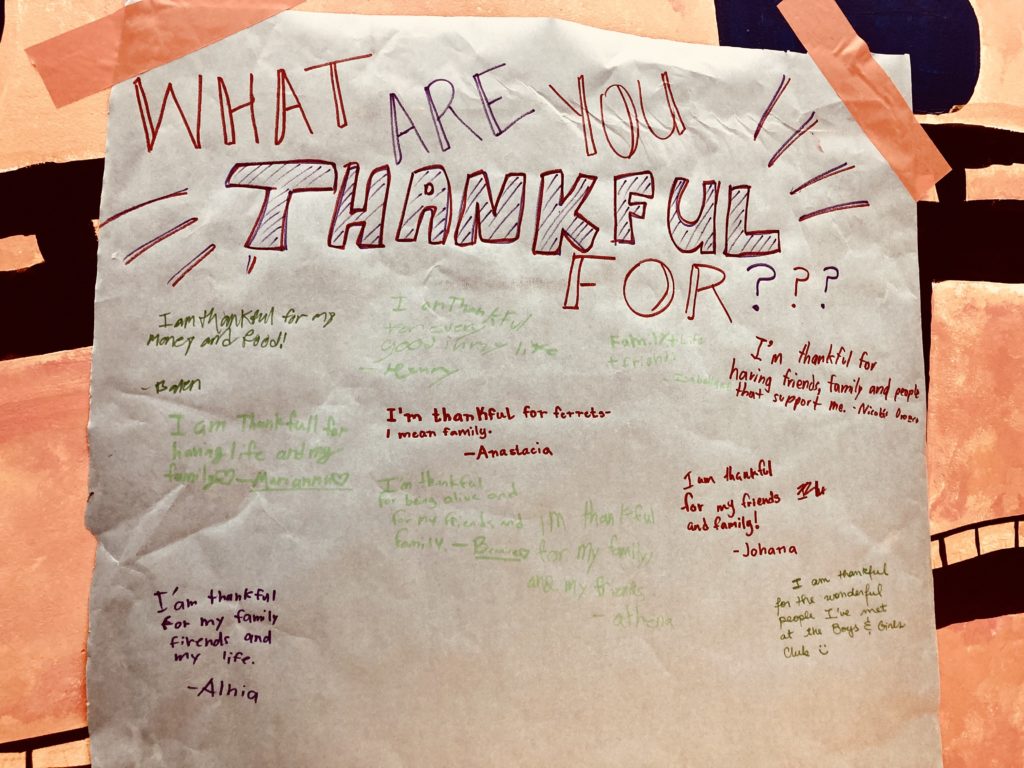 WHAT ARE YOU
THANKFUL
FOR???
I am thankful for my
money and food!
I am Thankful
for every
good things life
- Henry
Family + Life
+ Friends
I'm thankful for
having friends, family and people
that support me. - Nicole
I am Thankfull for
having life and my
family♡ - Marianna♡
I'm thankful for ferrets-
I mean family.
- Anastacia
I'm thankful
for being alive and
for my friends and
family. -
I am thankful
for my friends
and family!
- Johana
im thankful
for my family,
and my friends
- athena
I'am thankful
for my family
firends and
my life.
- Alnia
I am thankful
for the wonderful
people I've met
at the Boys & Girls
Club ☺